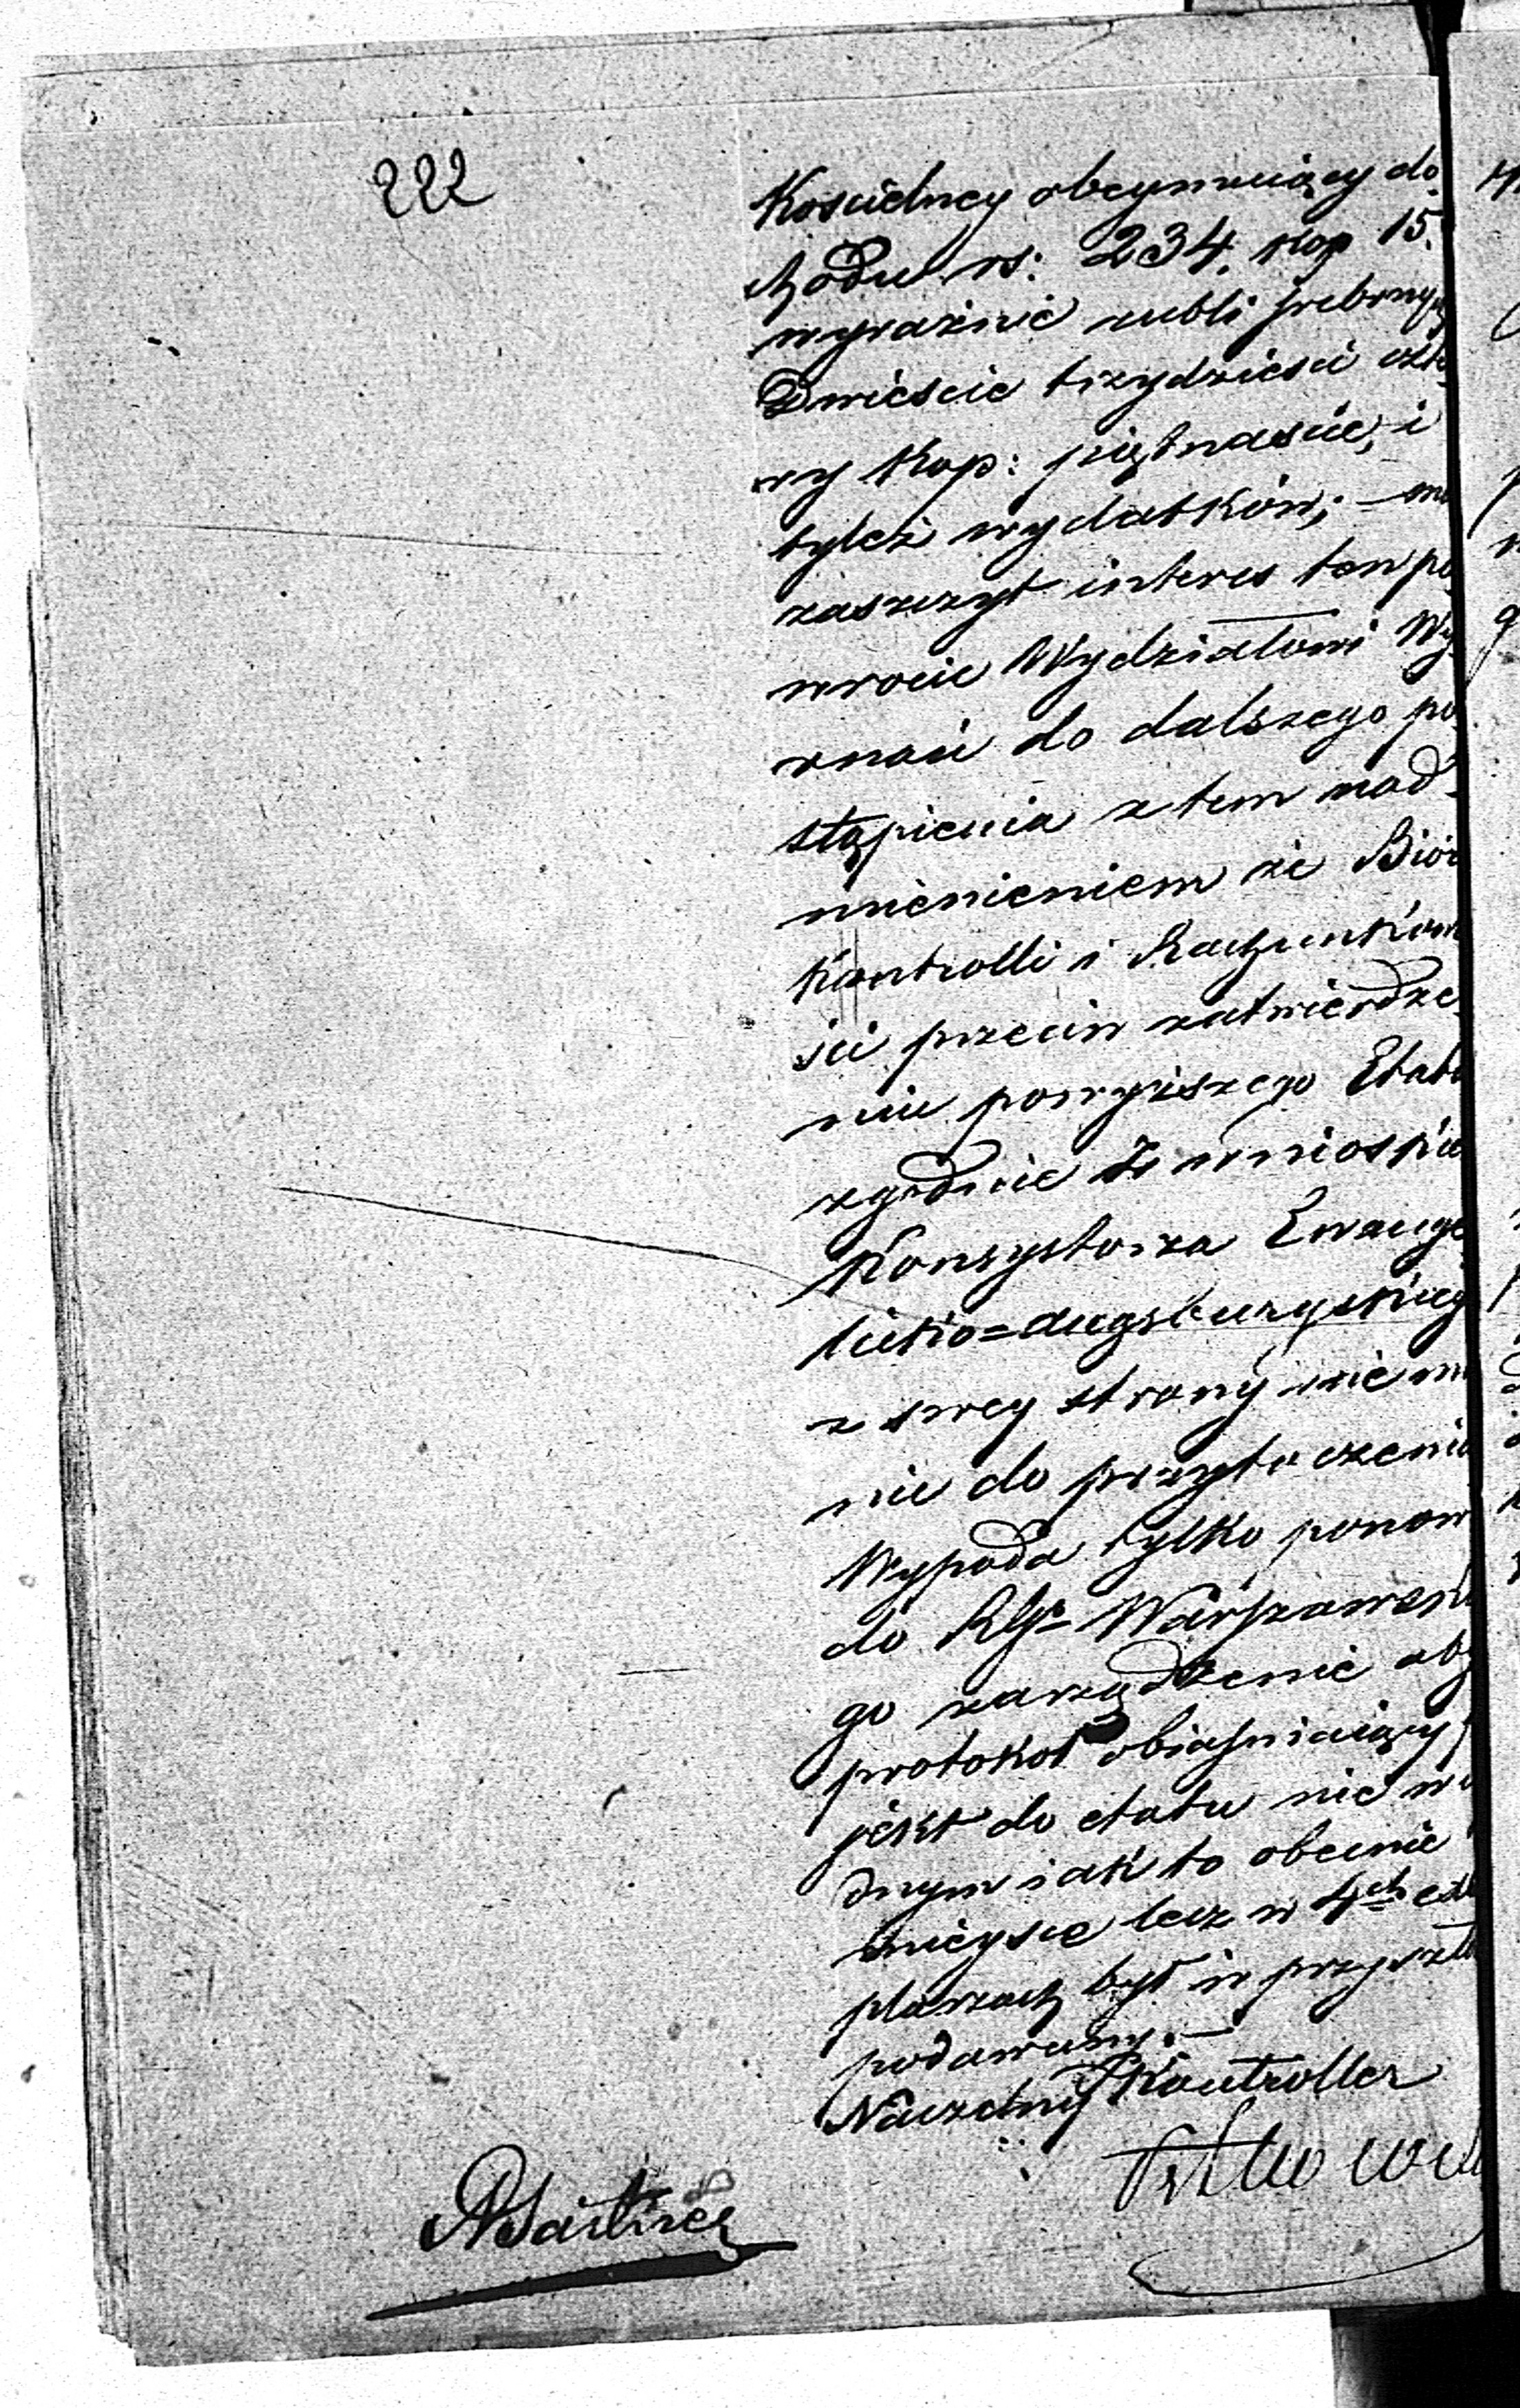 222
Kościelney obeymuiący do
chodu rs: 234. kop 15.
wyraźnie rubli srebrnych
Dwieście trzydzieści czte
ry Kop: piętnaście, i
tyleż wydatków; – ma
zaszczyt interes ten po
wrócić Wydziałowi Wy
znań do dalszego po
stąpienia z tem nad
mienieniem że Bióro
Kontrolli i Rachunkowo
ści przeciw zatwierdze
niu powyższego Etatu
zgodnie z wnioskiem
Konsystorza Ewange
licko=Augsburgskiego
z swey strony nic ma
nie do przytoczenia
Wypada tylko ponowić
do RGo Warszawskie
go zarządzenie aby
protokół obiaśniaiący
jekt do etatu nie w
dnym iak to obecnie
mieysce lecz w 4ch exem
plarzach był w przyszło
podawany. –
Naczelny Kontroller